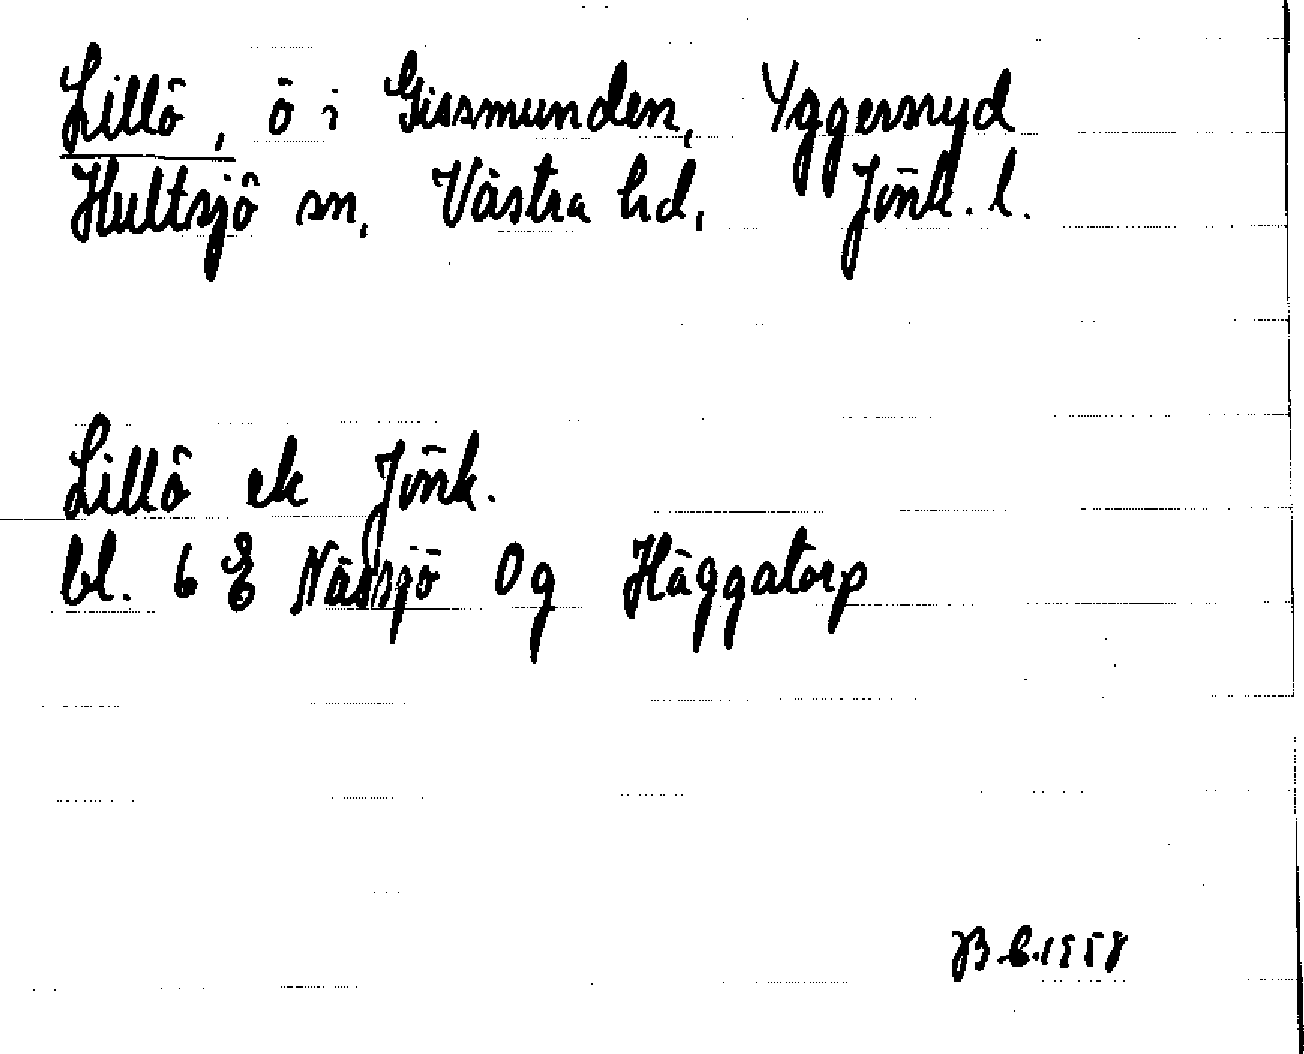 Lillö, ö i Gissmunden, Yggersryd
Hultsjö sn, Västra hd, Jönk. l.
Lillö ek Jönk.
bl. 6 E Nässjö 0g Häggatorp
1958